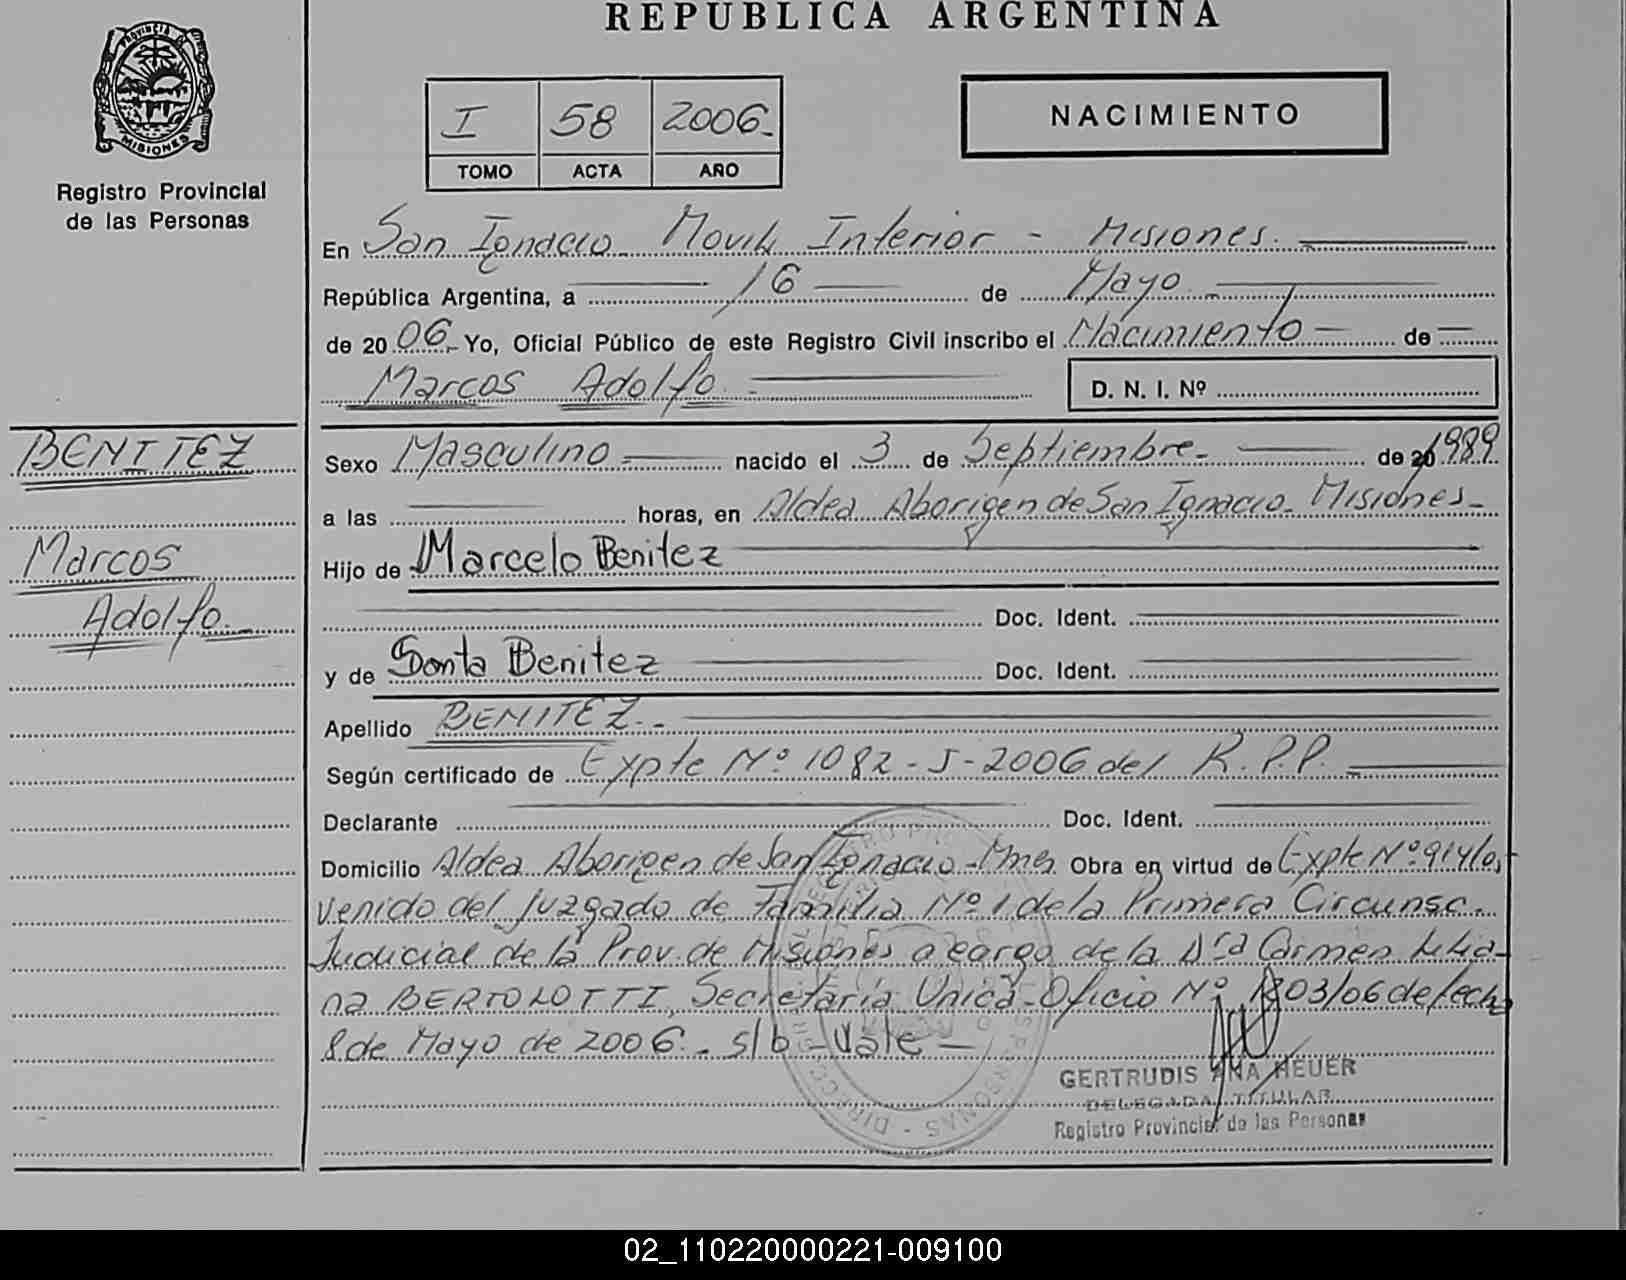 REPUBLICA ARGENTINA
PROVINCIA DE
MISIONES
Registro Provincial
de las Personas
I 58 2006.
TOMO ACTA AÑO
NACIMIENTO
En San Ignacio Movil Interior - Misiones.
República Argentina, a 16 de Mayo
de 20 06. Yo, Oficial Público de este Registro Civil inscribo el Nacimiento de
Marcos Adolfo
D. N. I. Nº
BENITEZ
Marcos
Adolfo.
Sexo Masculino nacido el 3 de Septiembre. de 1989
a las horas, en Aldea Aborigen de San Ignacio. Misiones
Hijo de Marcelo Benitez
Doc. Ident.
y de Santa Benitez Doc. Ident.
Apellido BENITEZ.
Según certificado de Expte Nº 1082-J-2006 del R.P.P.
Declarante Doc. Ident.
Domicilio Aldea Aborigen de San Ignacio-Mnes Obra en virtud de Expte Nº 914/0,
venido del Juzgado de Familia Nº 1 de la Primera Circunsc.
Judicial de la Prov. de Misiones a cargo de la Dra Carmen Lilia-
na BERTOLOTTI, Secretaría Unica-Oficio Nº 1203/06 de fecha
8 de Mayo de 2006. s/b-Vale-
GERTRUDIS ANA HEUER
DELEGADA TITULAR
Registro Provincial de las Personas
02_110220000221-009100